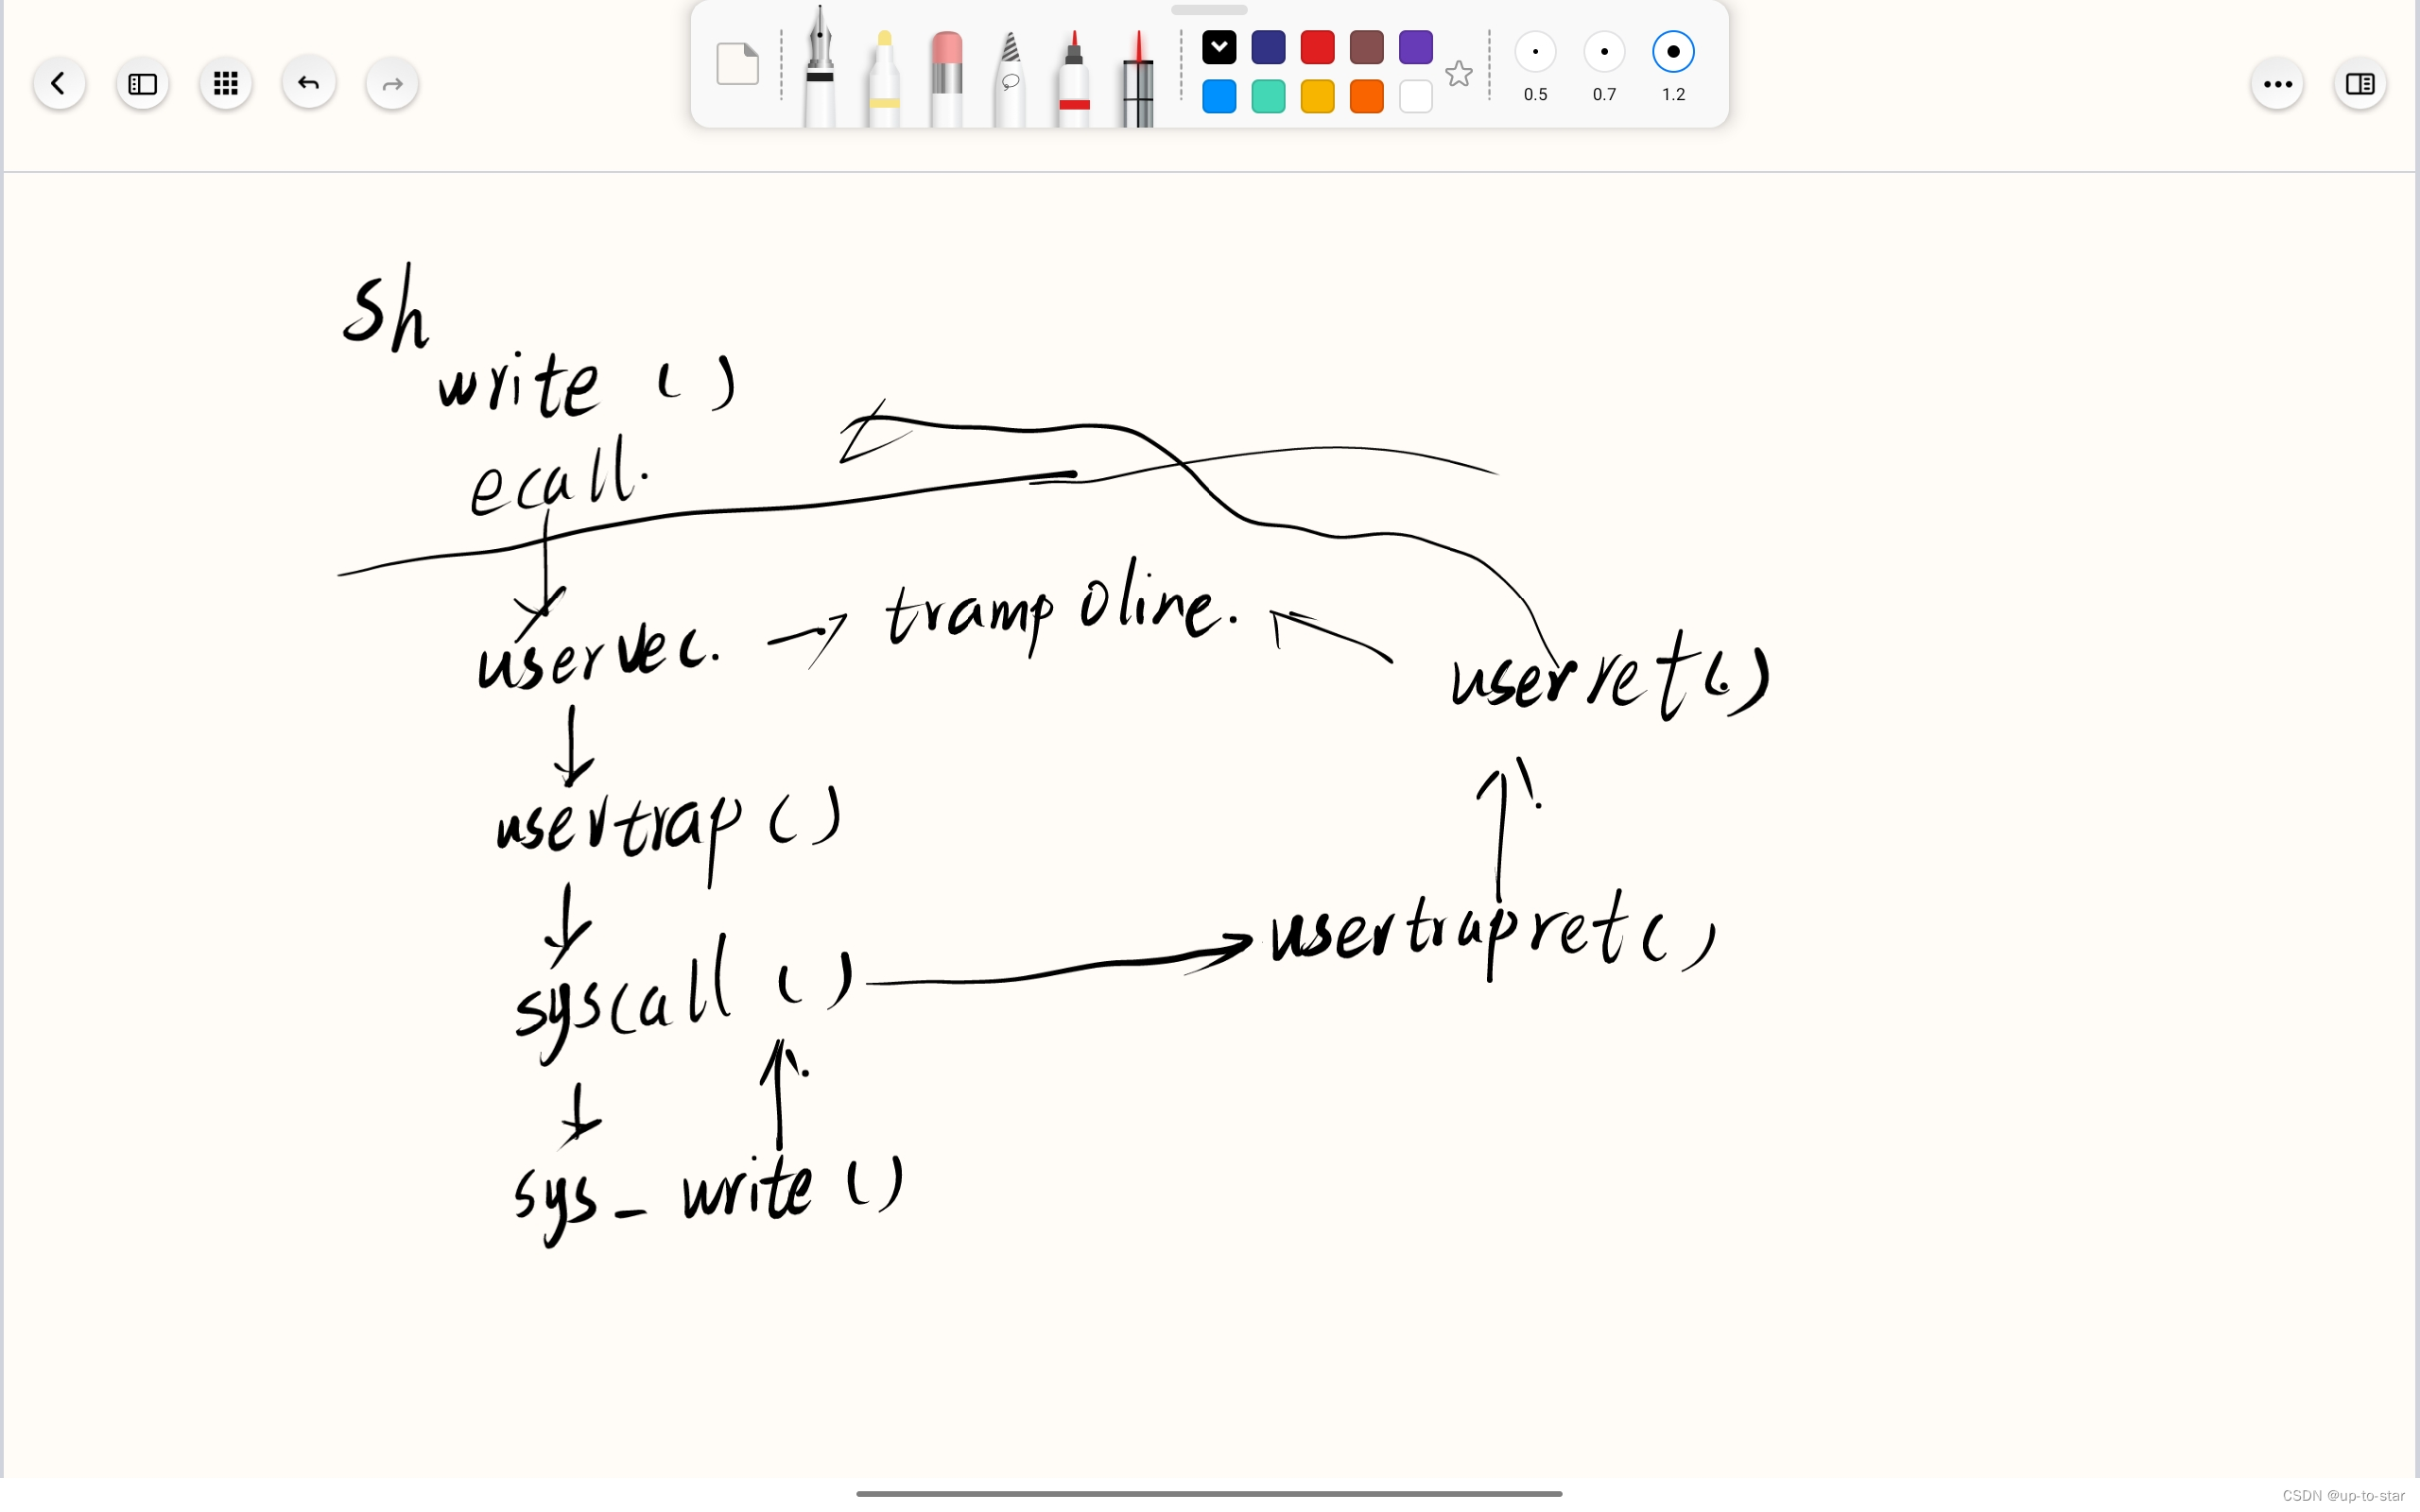 0.5 0.7 1.2
sh
write ()
ecall.
uservec. → trampoline.
userret(.)
usertrap ()
usertrapret()
syscall ()
sys_write ()
CSDN @up-to-star